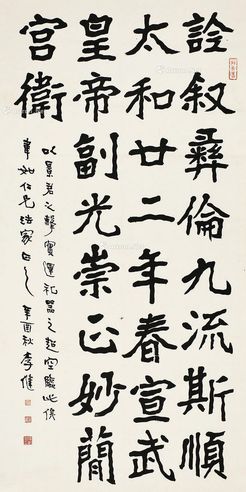 詮叙彝倫九流斯順
太和廿二年春宣武
皇帝副光崇正妙簡
宮衛
以景君之聲實運礼器之超空臨此俟
聿如仁兄法家正之 辛酉秋李健